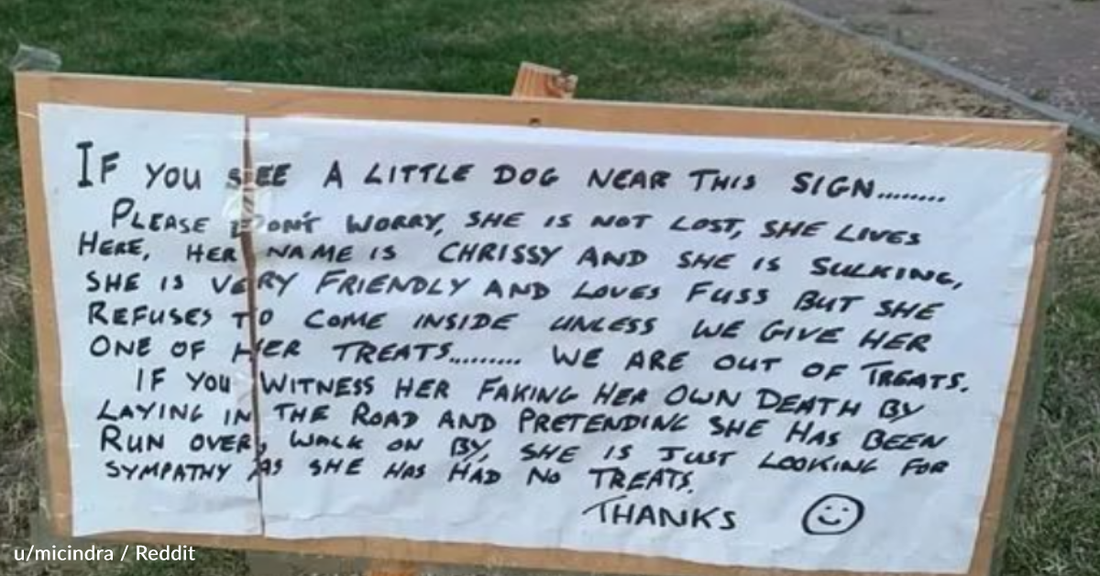 IF YOU SEE A LITTLE DOG NEAR THIS SIGN........
PLEASE DON'T WORRY, SHE IS NOT LOST, SHE LIVES
HERE, HER NAME IS CHRISSY AND SHE IS SULKING,
SHE IS VERY FRIENDLY AND LOVES FUSS BUT SHE
REFUSES TO COME INSIDE UNLESS WE GIVE HER
ONE OF HER TREATS......... WE ARE OUT OF TREATS.
IF YOU WITNESS HER FAKING HER OWN DEATH BY
LAYING IN THE ROAD AND PRETENDING SHE HAS BEEN
RUN OVER, WALK ON BY, SHE IS JUST LOOKING FOR
SYMPATHY AS SHE HAS HAD NO TREATS.
THANKS
u/micindra / Reddit